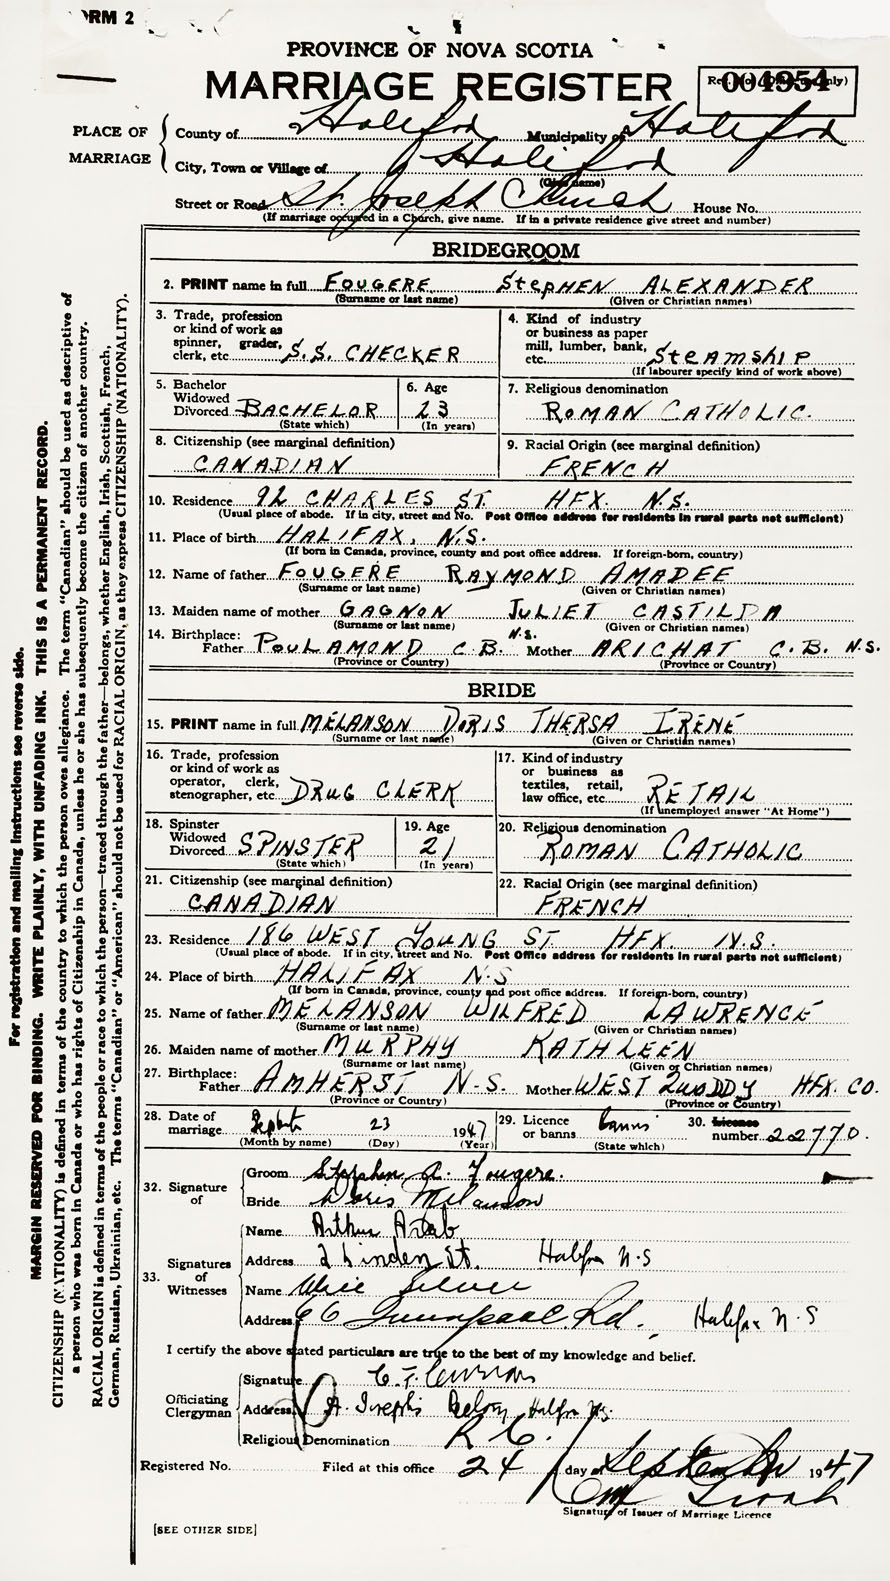 FORM 2
PROVINCE OF NOVA SCOTIA
MARRIAGE REGISTER
004954
PLACE OF MARRIAGE
County of Halifax Municipality of Halifax
City, Town or Village of Halifax
(Give name)
Street or Road St. Joseph Church House No.
(If marriage occured in a Church, give name. If in a private residence give street and number)
BRIDEGROOM
2. PRINT name in full FOUGERE StepHEN ALEXANDER
(Surname or last name) (Given or Christian names)
3. Trade, profession or kind of work as spinner, grader, clerk, etc. S.S. CHECKER
4. Kind of industry or business as paper mill, lumber, bank, etc. STEAMSHIP
(If labourer specify kind of work above)
5. Bachelor Widowed Divorced BACHELOR
(State which)
6. Age 23
(In years)
7. Religious denomination ROMAN CATHOLIC.
8. Citizenship (see marginal definition)
CANADIAN
9. Racial Origin (see marginal definition)
FRENCH
10. Residence 92 CHARLES ST. HFX. N.S.
(Usual place of abode. If in city, street and No. Post Office address for residents in rural parts not sufficient)
11. Place of birth HALIFAX, N.S.
(If born in Canada, province, county and post office address. If foreign-born, country)
12. Name of father FOUGERE RAYMOND AMADEE
(Surname or last name) (Given or Christian names)
13. Maiden name of mother GAGNON JULIET CASTILDA
(Surname or last name) (Given or Christian names)
14. Birthplace: Father POULAMOND C.B. N.S. Mother ARICHAT C.B. N.S.
(Province or Country) (Province or Country)
BRIDE
15. PRINT name in full MELANSON DORIS THERSA IRENE
(Surname or last name) (Given or Christian names)
16. Trade, profession or kind of work as operator, clerk, stenographer, etc. DRUG CLERK
17. Kind of industry or business as textiles, retail, law office, etc. RETAIL
(If unemployed answer "At Home")
18. Spinster Widowed Divorced SPINSTER
(State which)
19. Age 21
(In years)
20. Religious denomination ROMAN CATHOLIC
21. Citizenship (see marginal definition)
CANADIAN
22. Racial Origin (see marginal definition)
FRENCH
23. Residence 186 WEST YOUNG ST HFX. N.S.
(Usual place of abode. If in city, street and No. Post Office address for residents in rural parts not sufficient)
24. Place of birth HALIFAX N.S
(If born in Canada, province, county and post office address. If foreign-born, country)
25. Name of father MELANSON WILFRED LAWRENCE
(Surname or last name) (Given or Christian names)
26. Maiden name of mother MURPHY KATHLEEN
(Surname or last name) (Given or Christian names)
27. Birthplace: Father AMHERST N.S. Mother WEST QUODDY HFX. CO.
(Province or Country) (Province or Country)
28. Date of marriage Sept 23 1947
(Month by name) (Day) (Year)
29. Licence or banns banns
(State which)
30. Licence number 22770.
32. Signature of
Groom Stephen A. Fougere.
Bride Doris Melanson
33. Signatures of Witnesses
Name Arthur
Address 2 Linden St. Halifax N.S
Name
Address 66 Rd. Halifax N.S
I certify the above stated particulars are true to the best of my knowledge and belief.
Officiating Clergyman
Signature
Address St. Joseph's Halifax N.S.
Religious Denomination R C.
Registered No. Filed at this office 24 day of September 1947
Signature of Issuer of Marriage Licence
[SEE OTHER SIDE]
For registration and mailing instructions see reverse side.
MARGIN RESERVED FOR BINDING. WRITE PLAINLY, WITH UNFADING INK. THIS IS A PERMANENT RECORD.
CITIZENSHIP (NATIONALITY) is defined in terms of the country to which the person owes allegiance. The term "Canadian" should be used as descriptive of
a person who was born in Canada or who has rights of Citizenship in Canada, unless he or she has subsequently become the citizen of another country.
RACIAL ORIGIN is defined in terms of the people or race to which the person—traced through the father—belongs, whether English, Irish, Scottish, French,
German, Russian, Ukrainian, etc. The terms "Canadian" or "American" should not be used for RACIAL ORIGIN, as they express CITIZENSHIP (NATIONALITY).